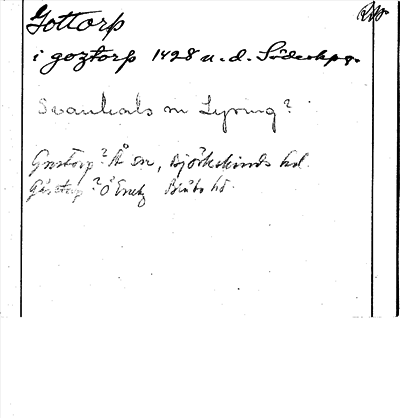 Gottorp
i goztorp 1428 u. d. Söderkpg.
Svanhals sn Lysing?
Gustorp? Å sn, Björkekinds hd.
Gåstorp? Ö Eneby Bråbo hd.